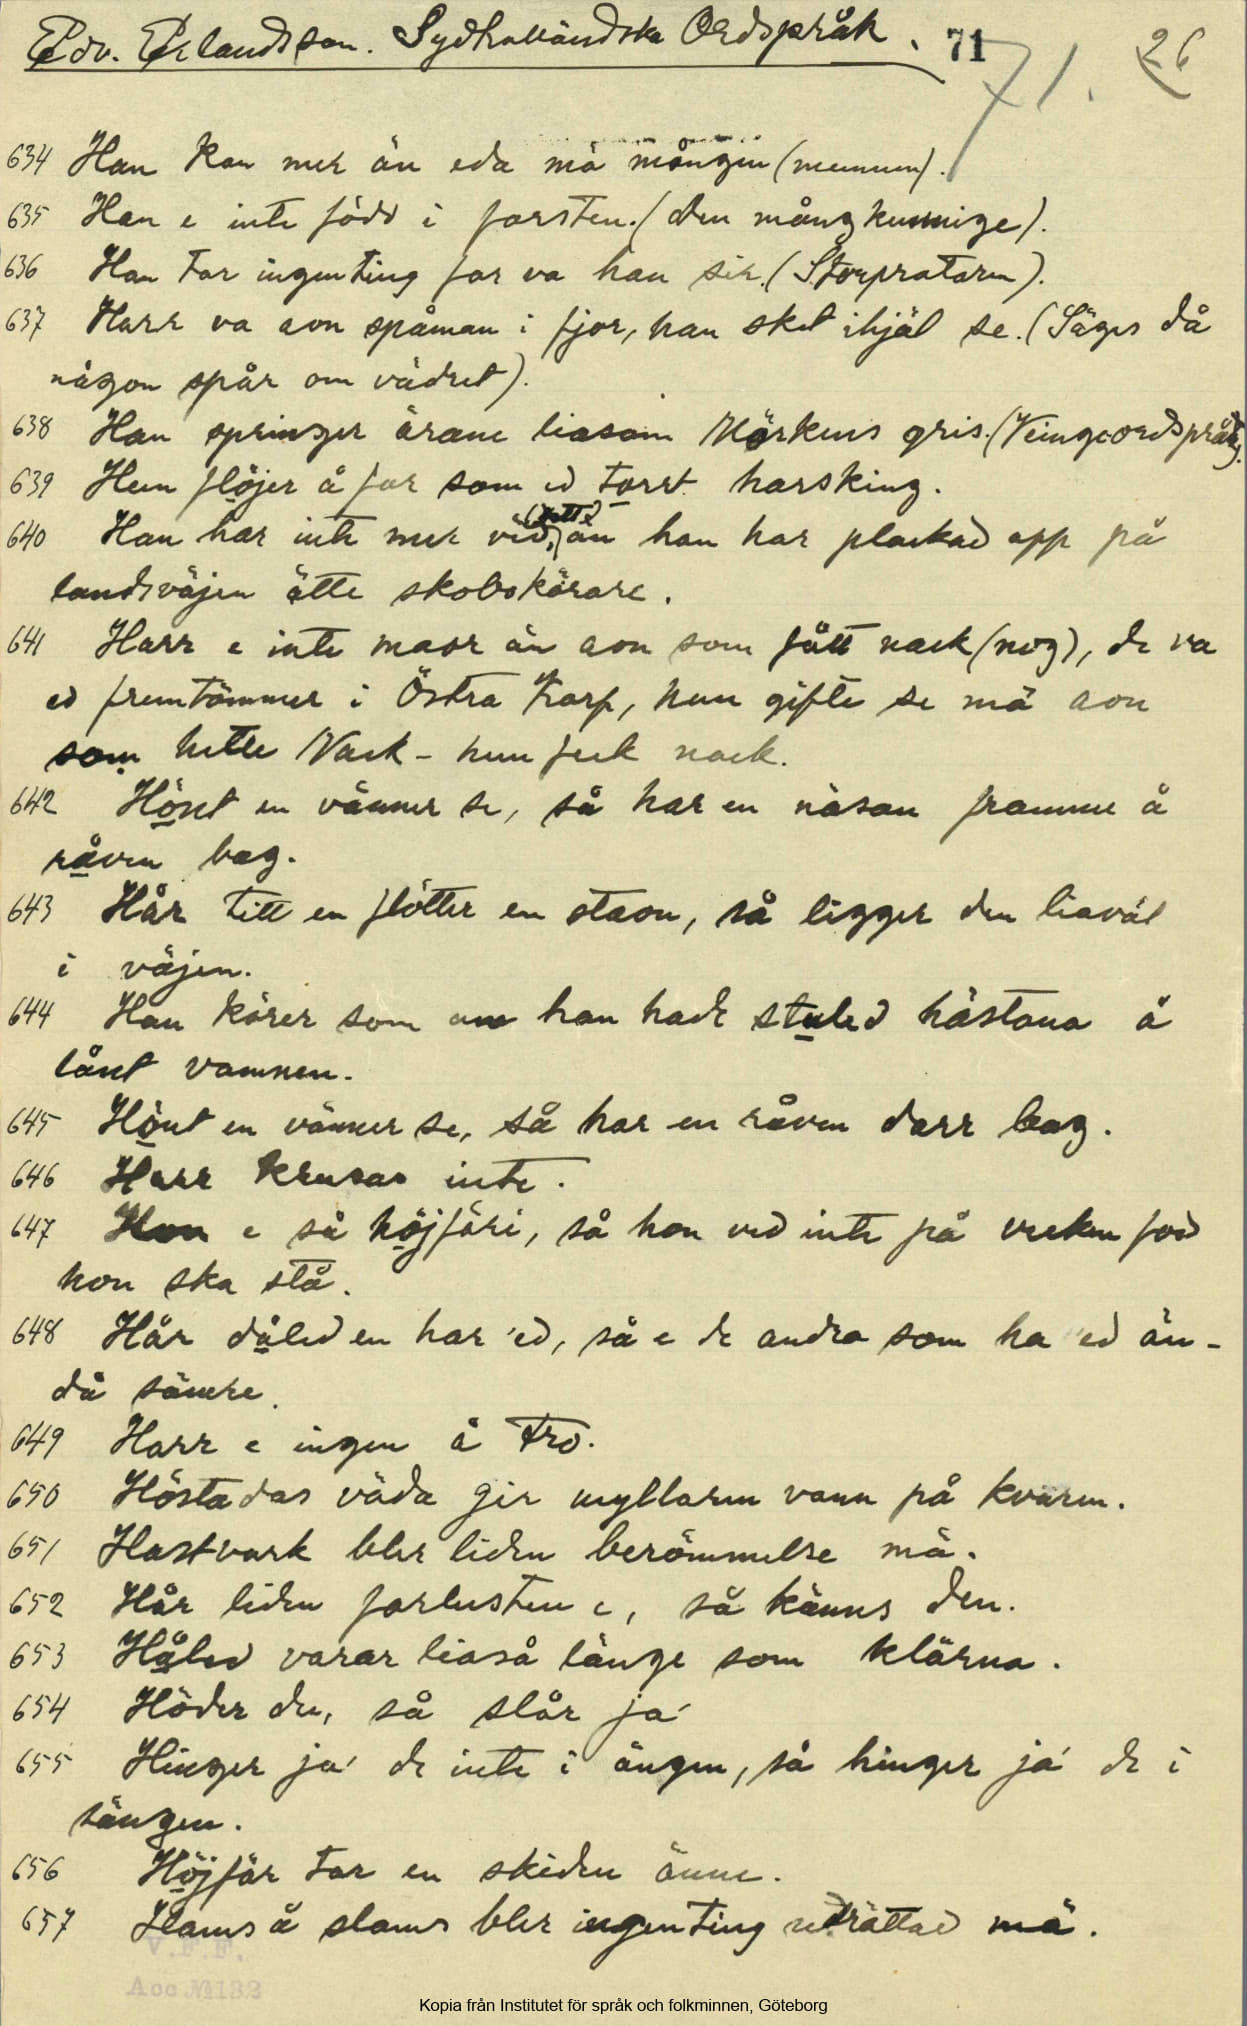 Edv. Erlandsson. Sydhalländska Ordspråk. 71 71. 26
634 Han kan mer än eda mä mången (munnen).
635 Han e inte född i farsten. (den mångkunnige).
636 Han tar ingenting far va han sir. (Storprataren).
637 Harr va aon spåman i fjor, han sket ihjäl se. (Säges då
någon spår om vädret).
638 Han springer ärane liasom Mörkens gris. (Veingeordspråk).
639 Hun flöjer å far som ed torrt harsking.
640 Han har inte mer vid, än han har plackad opp på
landsväjen ätte skobokärare.
641 Harr e inte maor än aon som fått nack (nog), de va
ed fremtömmer i Östra Karp, hun gifte se mä aon
som hette Nack - hun feck nack.
642 Hönt en vänner se, så har en näsan framme å
råven bag.
643 Hår titt en flötter en staon, så ligger den liaväl
i väjen.
644 Han körer som om han hade stuled hästana å
lånt vamnen.
645 Hönt en vänner se, så har en råven darr bag.
646 Harr krusas inte.
647 Hon e så höjfäri, så hon ved inte på vecken fod
hon ska stå.
648 Hår dåled en har 'ed, så e de andra som ha 'ed än-
då sämre.
649 Harr e ingen å tro.
650 Höstadas väda gir myllaren vann på kvarn.
651 Hastvark bler liden berömmelse mä.
652 Hår liden farlusten e, så känns den.
653 Håled varar liaså länge som klärna.
654 Höder du, så slår ja'
655 Hinger ja' de inte i ängen, så hinger ja' de i
sängen.
656 Höjfär tar en skiden änne.
657 Hams å slams bler ingenting uträttad mä.
V.F.F.
Acc № 132
Kopia från Institutet för språk och folkminnen, Göteborg